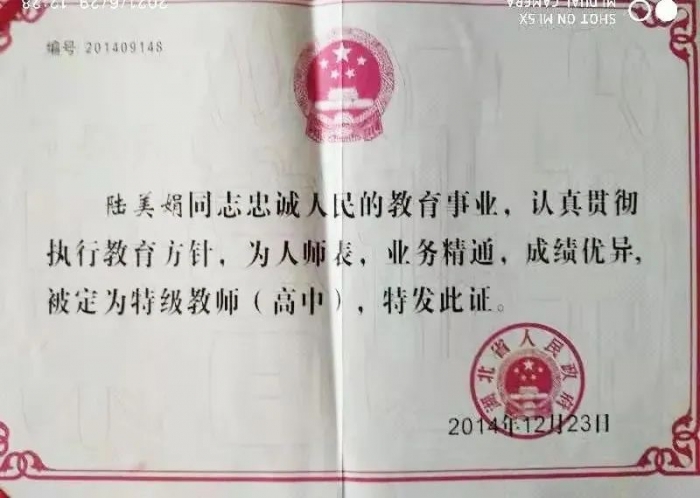 2021/6/29 12:38
SHOT ON MI 5X
MI DUAL CAMERA
编号 201409148
陆美娟同志忠诚人民的教育事业，认真贯彻
执行教育方针，为人师表，业务精通，成绩优异，
被定为特级教师（高中），特发此证。
湖北省人民政府
2014年12月23日